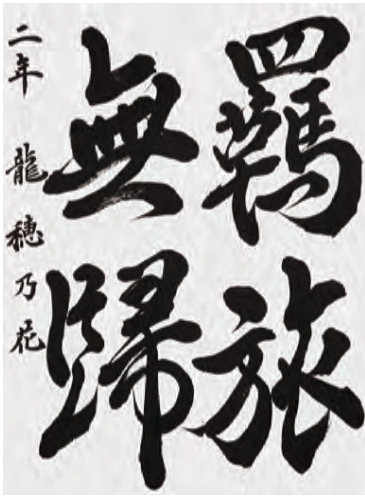 羈旅
無歸
二年 龍穂乃花